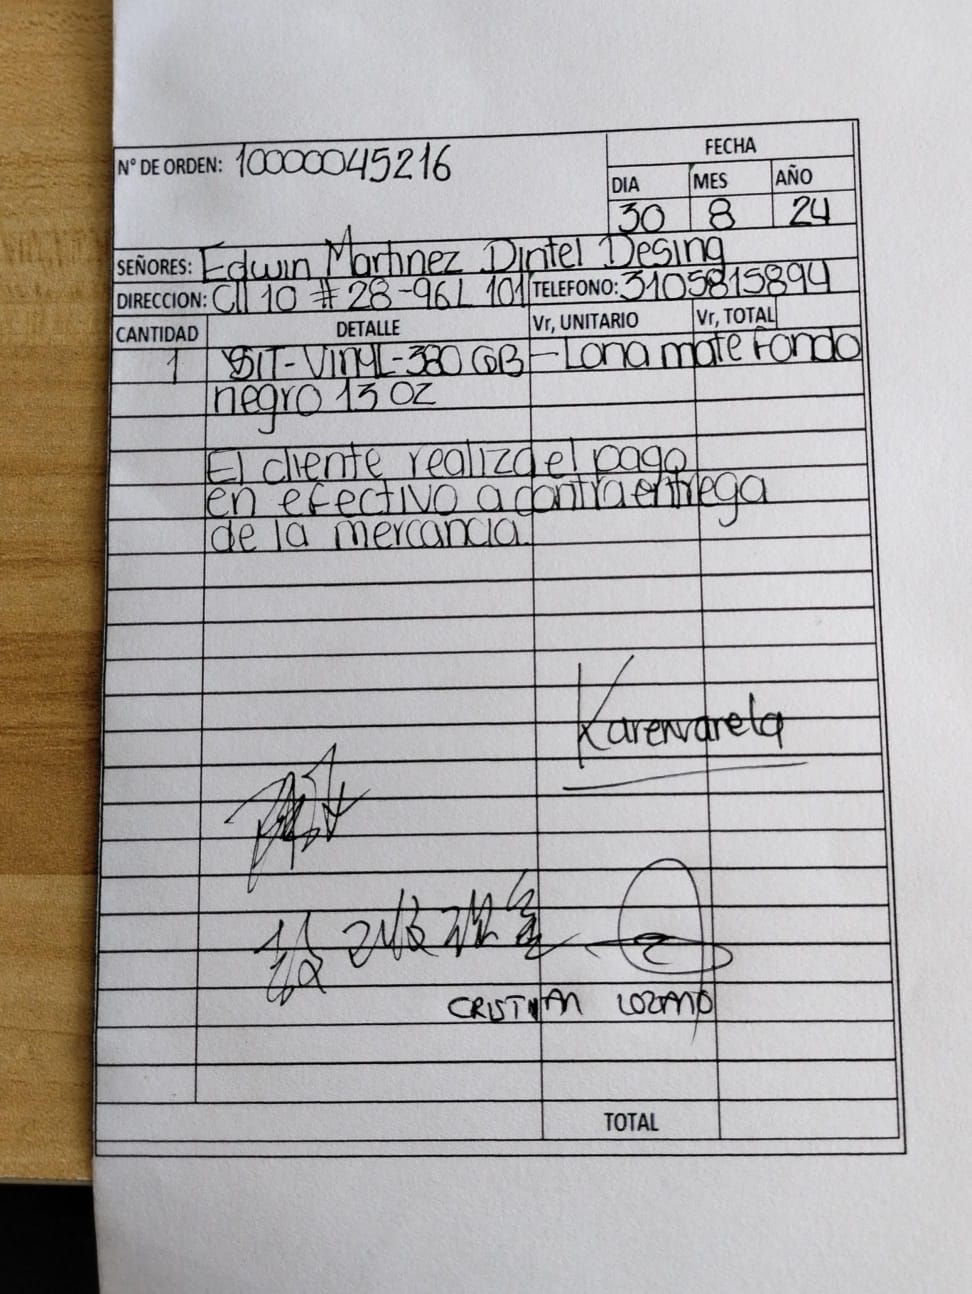 N° DE ORDEN: 10000045216
FECHA
DIA MES AÑO
30 8 24
SEÑORES: Edwin Martinez Dintel Desing
DIRECCION: Cll 10 # 28-96 L 101 TELEFONO: 3105815894
CANTIDAD DETALLE Vr, UNITARIO Vr, TOTAL
1 SIT-VINYL-380 GB - Lona mate Fondo
negro 13 OZ
El cliente realiza el pago
en efectivo a contra entrega
de la mercancia.
Karenvarela
CRISTIAN LOZANO
TOTAL